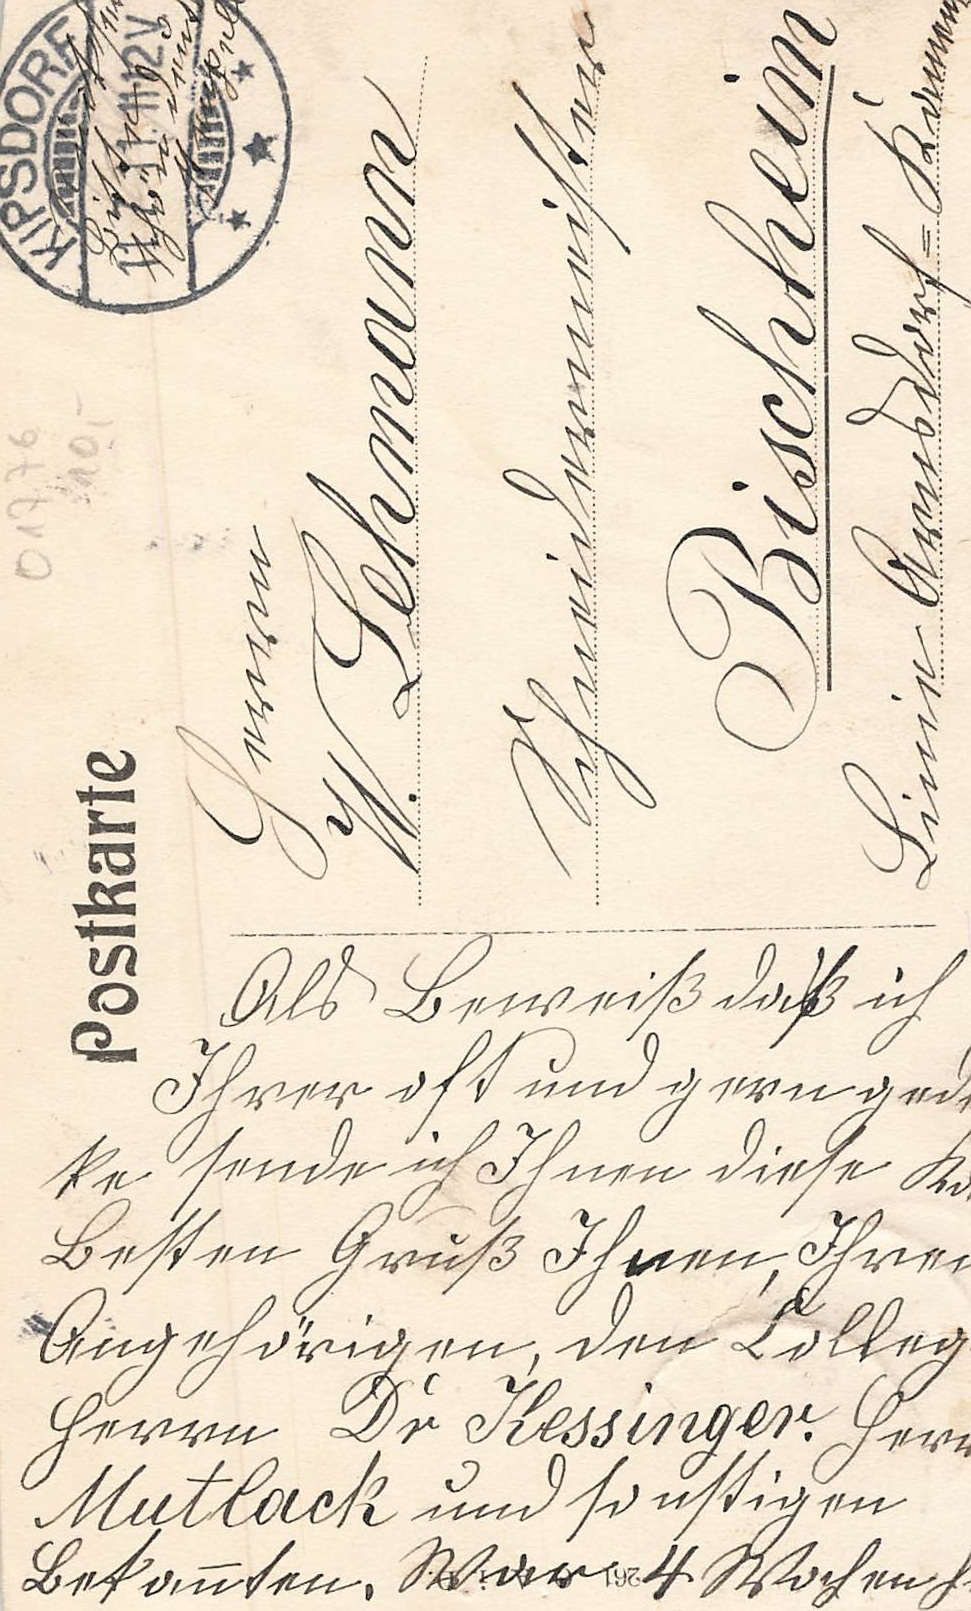 Postkarte
KIPSDORF
11.11.11 12V
01776
10,-
Herrn
W. Lehmann
Schneidermeister
Bischheim
Linie Arnsdorf=Kamenz
Als Beweiß daß ich
Ihrer oft und gern geden
ke sende ich Ihnen diese Ka
Besten Gruß Ihnen, Ihren
Angehörigen, den Colleg
Herrn Dr Kessinger. Herr
Mutlack und sonstigen
Bekannten. War 4 Wochen h